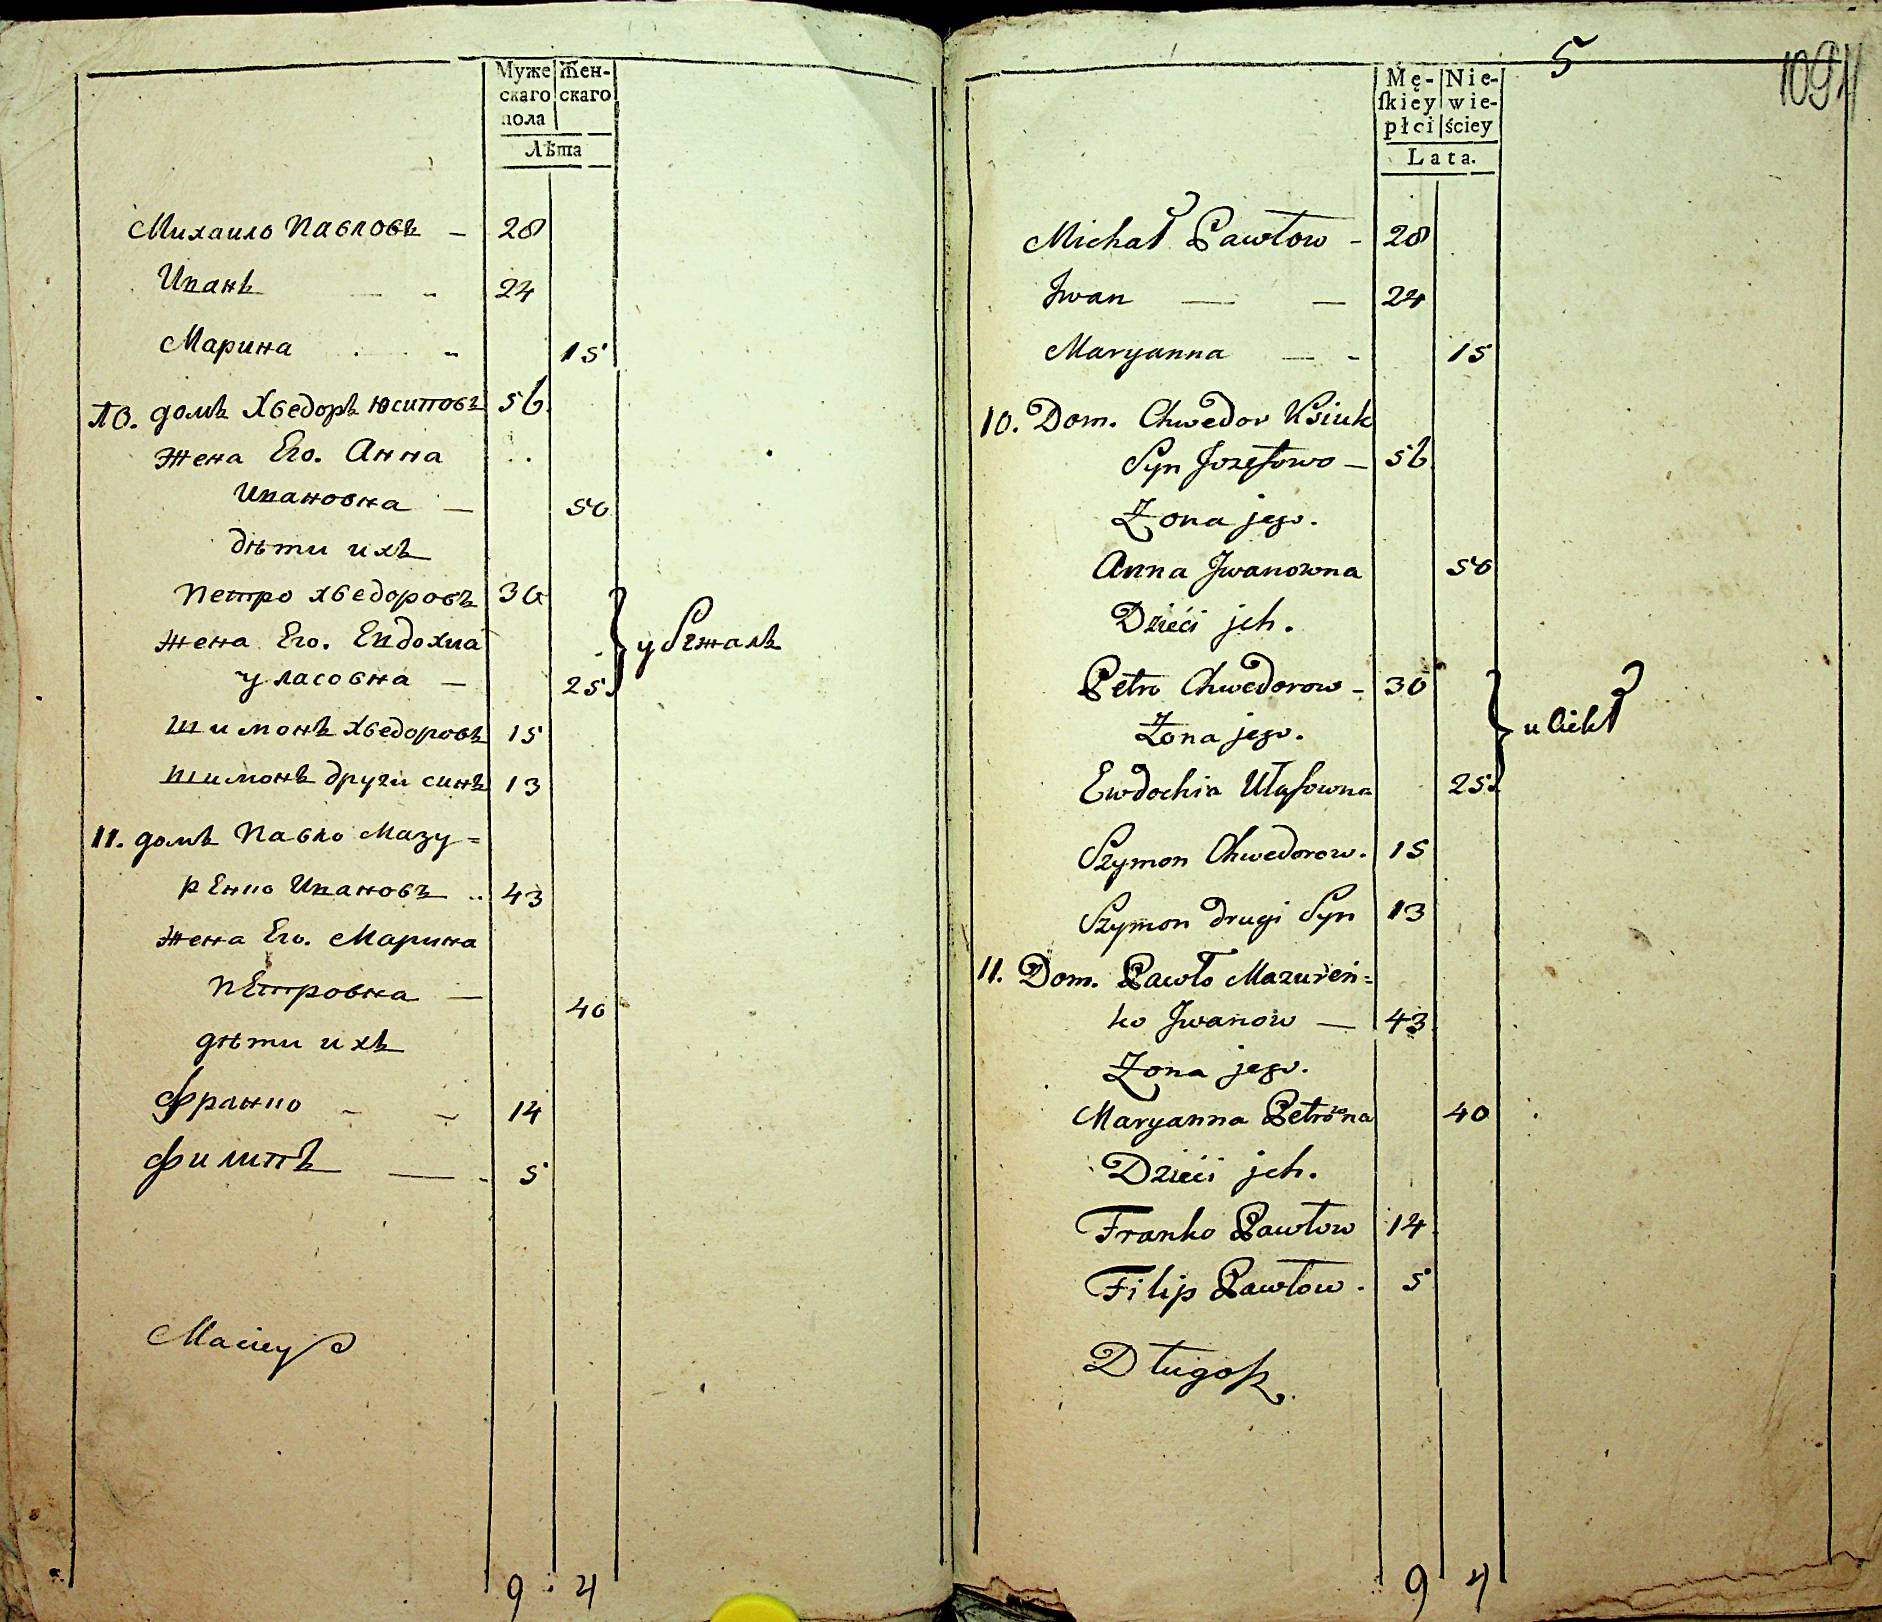 Муже Жен-
скаго скаго
пола
Лѣта
Михаило Павловъ – 28
Иванъ 24
Марина 15
10. домъ Хведоръ Юсиповъ 56
Жена Его. Анна
Ивановна – 50
дѣти ихъ
Петро Хведоровъ 30
Жена Его. Евдохиа
Уласовна – 25
убежалъ
Шимонъ Хведоровъ 15
Шимонъ други синъ 13
11. домъ Павло Мазу=
рЕнко Ивановъ 43
Жена Его. Марина
пЕтровна – 40
дѣти ихъ
Франко 14
Филипъ 5
Maciey
9 4
5
109
Mę- Nie-
ſkiey wie-
płci ściey
Lata.
Michał Pawłow – 28
Jwan 24
Maryanna 15
10. Dom. Chwedor Ksiuk
Syn Jozefowo – 56
Żona jego.
Anna Jwanowna 50
Dzieci jch.
Petro Chwedorow – 30
Żona jego.
Ewdochia Ułasowna 25
uciekł
Szymon Chwedorow. 15
Szymon drugi Syn 13
11. Dom. Pawło Mazureń=
ko Jwanow – 43
Żona jego.
Maryanna Petrowna 40
Dzieci jch.
Franko Pawłow 14
Filip Pawłow. 5
Długosz
9 4